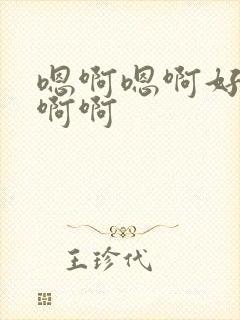 嗯啊嗯啊好
啊啊
王珍代